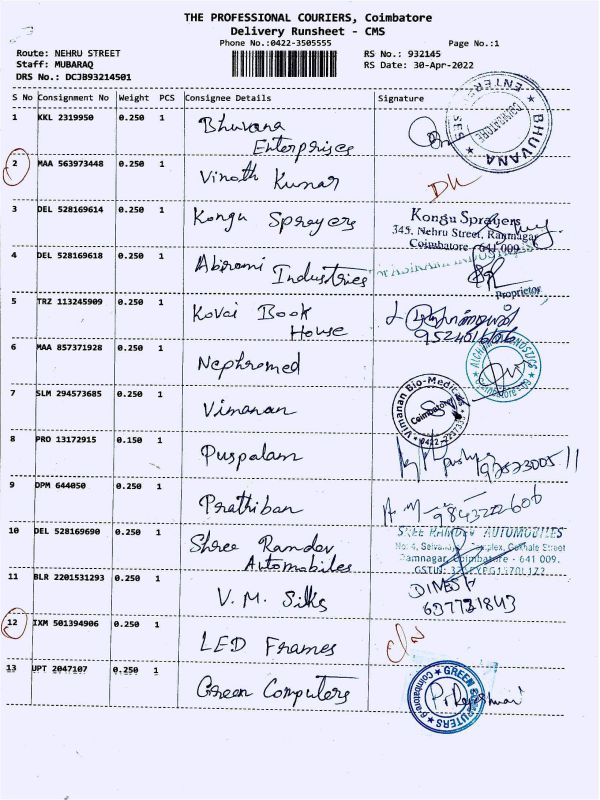 THE PROFESSIONAL COURIERS, Coimbatore
Delivery Runsheet - CMS
Phone No.:0422-3505555 Page No.:1
Route: NEHRU STREET RS No.: 932145
Staff: MUBARAQ RS Date: 30-Apr-2022
DRS No.: DCJB93214501
S No Consignment No Weight PCS Consignee Details Signature
1 KKL 2319950 0.250 1 Bhuvana
Enterprises
BHUVANA ENTERPRISES COIMBATORE
2 MAA 563973448 0.250 1 Vinoth Kumar
3 DEL 528169614 0.250 1 Kongu Sprayers
Kongu Sprayers
345, Nehru Street, Ramnagar
Coimbatore - 641 009
4 DEL 528169618 0.250 1 Abirami Industries
Proprietor
5 TRZ 113245909 0.250 1 Kovai Book
House
6 MAA 857371928 0.250 1 Nephromed
7 SLM 294573685 0.250 1 Vimanan
Vimanan Bio-Medic
Coimbatore
8 PRO 13172915 0.150 1 Puspalam
9 DPM 644050 0.250 1 Prathiban
10 DEL 528169690 0.250 1 Shree Ramdev
Automobiles
SREE RAMDEV AUTOMOBILES
Coimbatore - 641 009.
11 BLR 2201531293 0.250 1 V.M. Silks
DINESH
12 IXM 501394906 0.250 1 LED Frames
13 UPT 2047107 0.250 1 Green Computers
GREEN COMPUTERS